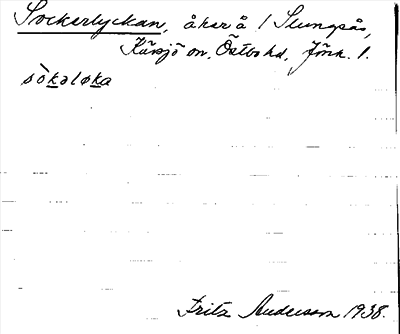 Sockerlyckan, åker å 1 Slungsås,
Kävsjö sn, Östbo hd, Jönk. l.
sòkəløka
Fritz Andersson 1938.